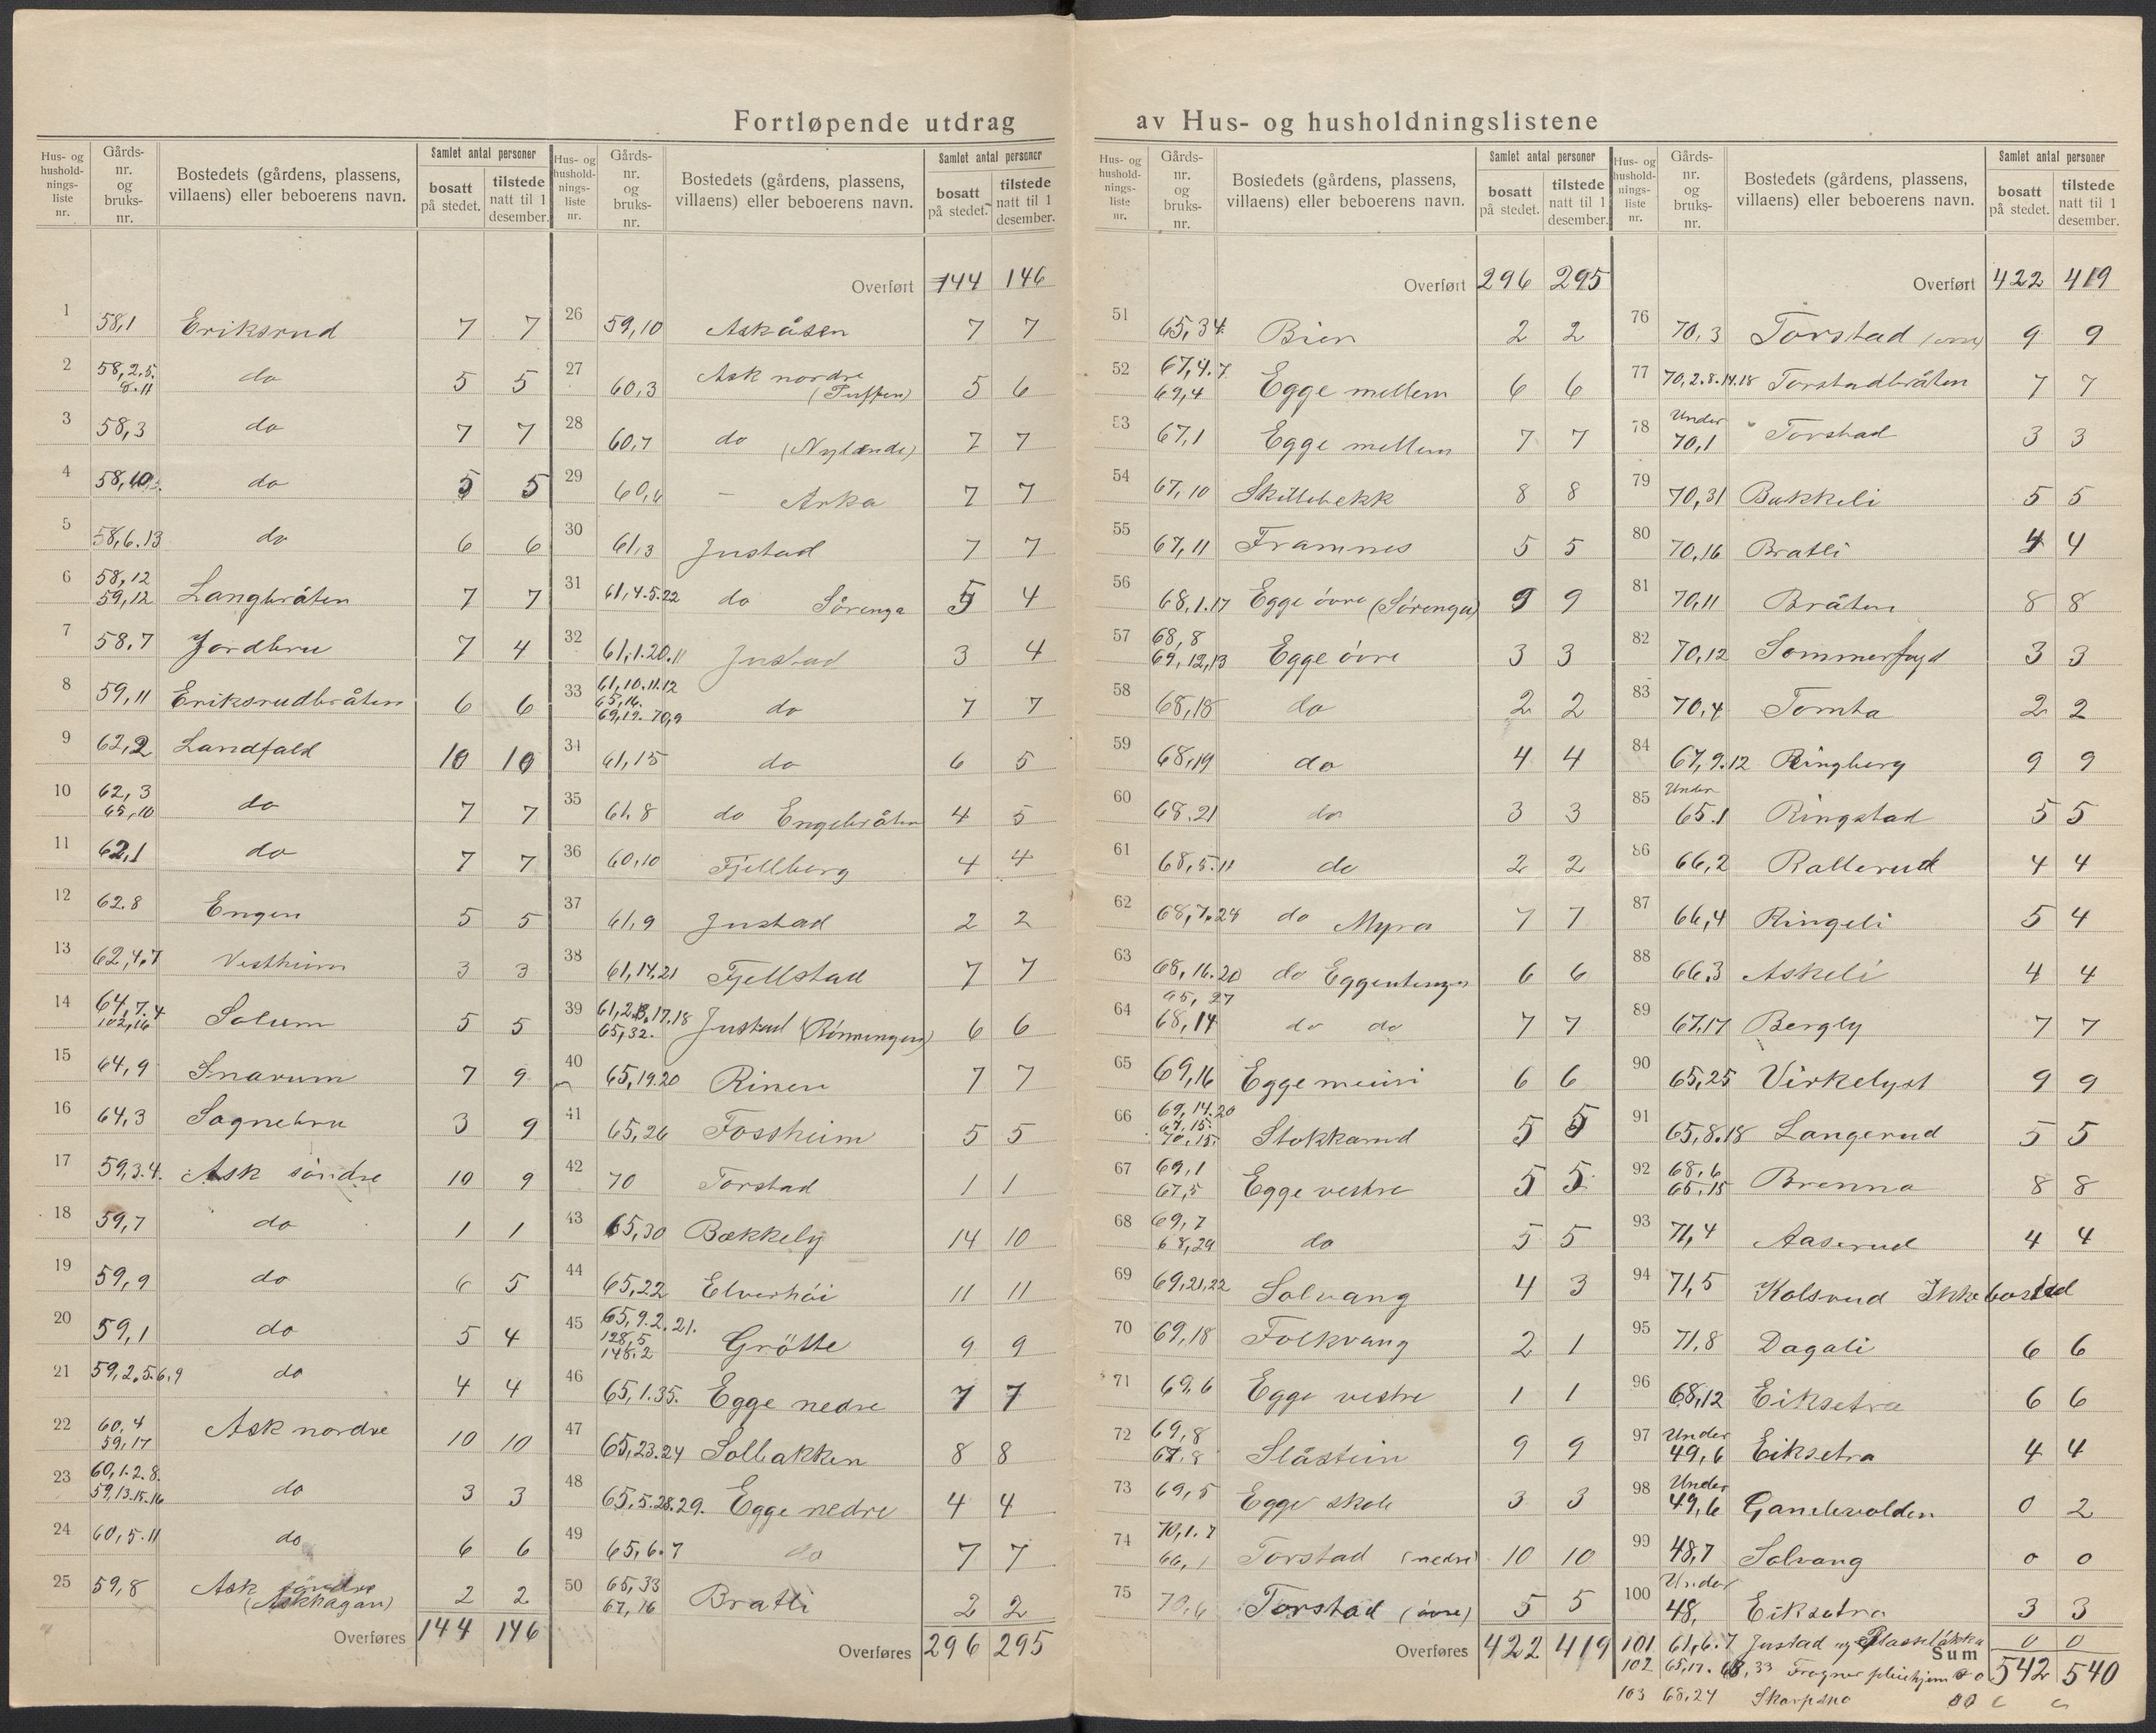 Fortløpende utdrag av Hus- og husholdningslistene
Hus- og hushold-nings-liste nr. | Gårds-nr. og bruks-nr. | Bostedets (gårdens, plassens, villaens) eller beboerens navn. | Samlet antal personer | bosatt på stedet. | tilstede natt til 1 desember.
1 58,1 Eriksrud 7 7
2 58,2,5. 8.11 do 5 5
3 58,3 do 7 7
4 58,10 do 5 5
5 58,6.13 do 6 6
6 58,12 59,12 Langbråten 7 7
7 58,7 Jordbru 7 4
8 59,11 Eriksrudbråten 6 6
9 62,2 Landfald 10 10
10 62,3 65,10 do 7 7
11 62,1 do 7 7
12 62.8 Engen 5 5
13 62,4,7 Vestheim 3 3
14 64,7.4 102,16 Solum 5 5
15 64,9 Snarum 7 9
16 64,3 Sognebru 3 9
17 59,3.4. Ask söndre 10 9
18 59,7 do 1 1
19 59,9 do 6 5
20 59,1 do 5 4
21 59,2,5.6,9 do 4 4
22 60,4 59,17 Ask nordre 10 10
23 60,1.2.8. 59,13.15.16 do 3 3
24 60,5.11 do 6 6
25 59,8 Ask söndre (Askhagan) 2 2
Overføres 144 146
Hus- og hushold-nings-liste nr. | Gårds-nr. og bruks-nr. | Bostedets (gårdens, plassens, villaens) eller beboerens navn. | Samlet antal personer | bosatt på stedet. | tilstede natt til 1 desember.
Overført 144 146
26 59,10 Askåsen 7 7
27 60,3 Ask nordre (Tuften) 5 6
28 60,7 do (Nylænde) 7 7
29 60,6 - Arka 7 7
30 61,3 Justad 7 7
31 61,4.5.22 do Sörenga 5 4
32 61,1.20.11 Justad 3 4
33 61,10.11.12 65,16. 69,19. 70,9 do 7 7
34 61,15 do 6 5
35 61.8 do Engebråten 4 5
36 60,10 Fjellberg 4 4
37 61,9 Justad 2 2
38 61,14.21 Fjellstad 7 7
39 61,2.13.17.18 65,32. Justad (Rönningen) 6 6
40 65,19.20 Rinen 7 7
41 65,26 Fossheim 5 5
42 70 Torstad 1 1
43 65,30 Bækkely 14 10
44 65,22 Elverhöi 11 11
45 65,9.2.21. 128,5 148.2 Grötte 9 9
46 65,1.35. Egge nedre 7 7
47 65,23.24 Solbakken 8 8
48 65,5.28.29. Egge nedre 4 4
49 65,6.7 do 7 7
50 65,33 67,16 Bratli 2 2
Overføres 296 295
Hus- og hushold-nings-liste nr. | Gårds-nr. og bruks-nr. | Bostedets (gårdens, plassens, villaens) eller beboerens navn. | Samlet antal personer | bosatt på stedet. | tilstede natt til 1 desember.
Overført 296 295
51 65,34 Bien 2 2
52 67,4.7 69,4 Egge mellem 6 6
53 67,1 Egge mellem 7 7
54 67,10 Skillebekk 8 8
55 67,11 Framnes 5 5
56 68,1.17 Egge övre (Sörenga) 9 9
57 68,8 69,12,13 Egge övre 3 3
58 68,18 do 2 2
59 68,19 do 4 4
60 68.21 do 3 3
61 68,5.11 do 2 2
62 68,7.28 do Myra 7 7
63 68,16.20 do Eggentangen 6 6
64 65,27 68,14 do do 7 7
65 69,16 Egge 6 6
66 69,14.20 67,15. 70,15. Stokkarud 5 5
67 69,1 67,5 Egge vestre 5 5
68 69,7 68,29 do 5 5
69 69,21,22 Solvang 4 3
70 69,18 Folkvang 2 1
71 69,6 Egge vestre 1 1
72 69,8 67.8 Slåstein 9 9
73 69,5 Egge skole 3 3
74 70,1.7 66,1 Torstad (nedre) 10 10
75 70,6 Torstad (övre) 5 5
Overføres 422 419
Hus- og hushold-nings-liste nr. | Gårds-nr. og bruks-nr. | Bostedets (gårdens, plassens, villaens) eller beboerens navn. | Samlet antal personer | bosatt på stedet. | tilstede natt til 1 desember.
Overført 422 419
76 70,3 Torstad (övre) 9 9
77 70,2.8.14.18 Torstadbråten 7 7
78 Under 70,1 Torstad 3 3
79 70,31 Bakkeli 5 5
80 70,16 Bratli 4 4
81 70,11 Bråten 8 8
82 70,12 Sommerfryd 3 3
83 70,4 Tomta 2 2
84 67,9.12 Ringberg 9 9
85 Under 65.1 Ringstad 5 5
86 66,2 Rallerud 4 4
87 66,4 Ringeli 5 4
88 66.3 Askeli 4 4
89 67,17 Bergly 7 7
90 65,25 Virkelyst 9 9
91 65,8.18 Langerud 5 5
92 68,6 65,15 Brenna 8 8
93 71,4 Aaserud 4 4
94 71,5 Kolsrud Ikke bosted
95 71,8 Dagali 6 6
96 68,12 Eiksetra 6 6
97 Under 49,6 Eiksetra 4 4
98 Under 49,6 Gamlevolden 0 2
99 48,7 Solvang 0 0
100 Under 48, Eiksetra 3 3
101 61,6.7 Justad og Plasseløkka 0 0
Sum 542 540
102 65,17. 68,33 Frogner pleiehjem 0 0
103 68,24 Skarpsno 0 0